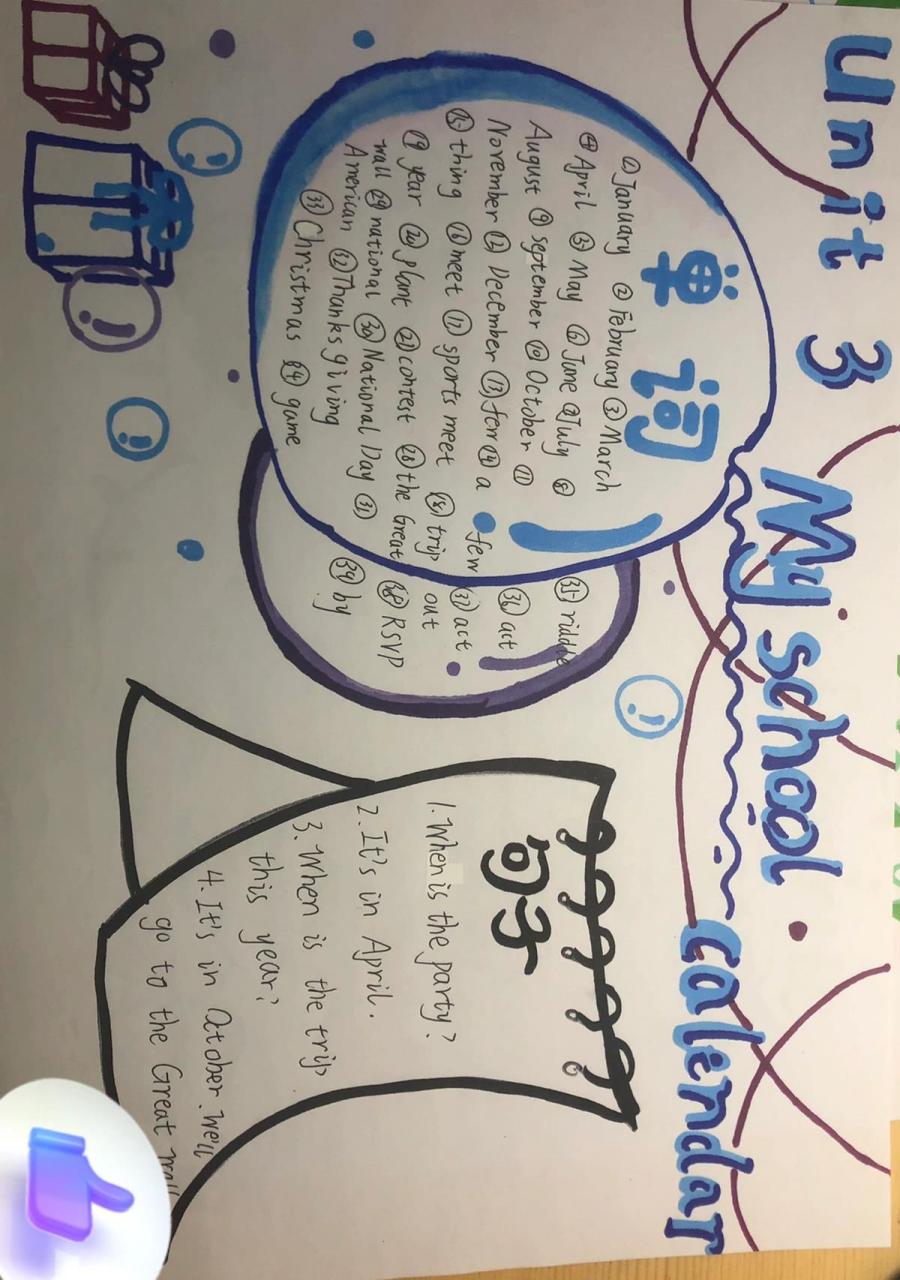 Unit 3 My school calendar
单词
①January ②February ③March
④April ⑤May ⑥June ⑦July ⑧
August ⑨september ⑩October ⑪
November ⑫December ⑬few ⑭a few
⑮thing ⑯meet ⑰sports meet ⑱trip
⑲year ⑳plant ㉑contest ㉒the Great
wall ㉙national ㉚National Day ㉛
American ㉜Thanksgiving
㉝Christmas ㉞game
㉟riddle
㊱act
㊲act
out
㊳RSVP
㊴by
句子
1. When is the party?
2. It's in April.
3. When is the trip
this year?
4. It's in October. We'll
go to the Great